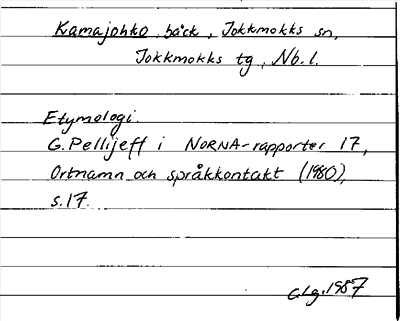 Kamajohko, bäck, Jokkmokks sn,
Jokkmokks tg, Nb. l.
Etymologi.
G. Pellijeff i NORNA-rapporter 17,
Ortnamn och språkkontakt (1980),
s. 17.
GLg. 1987